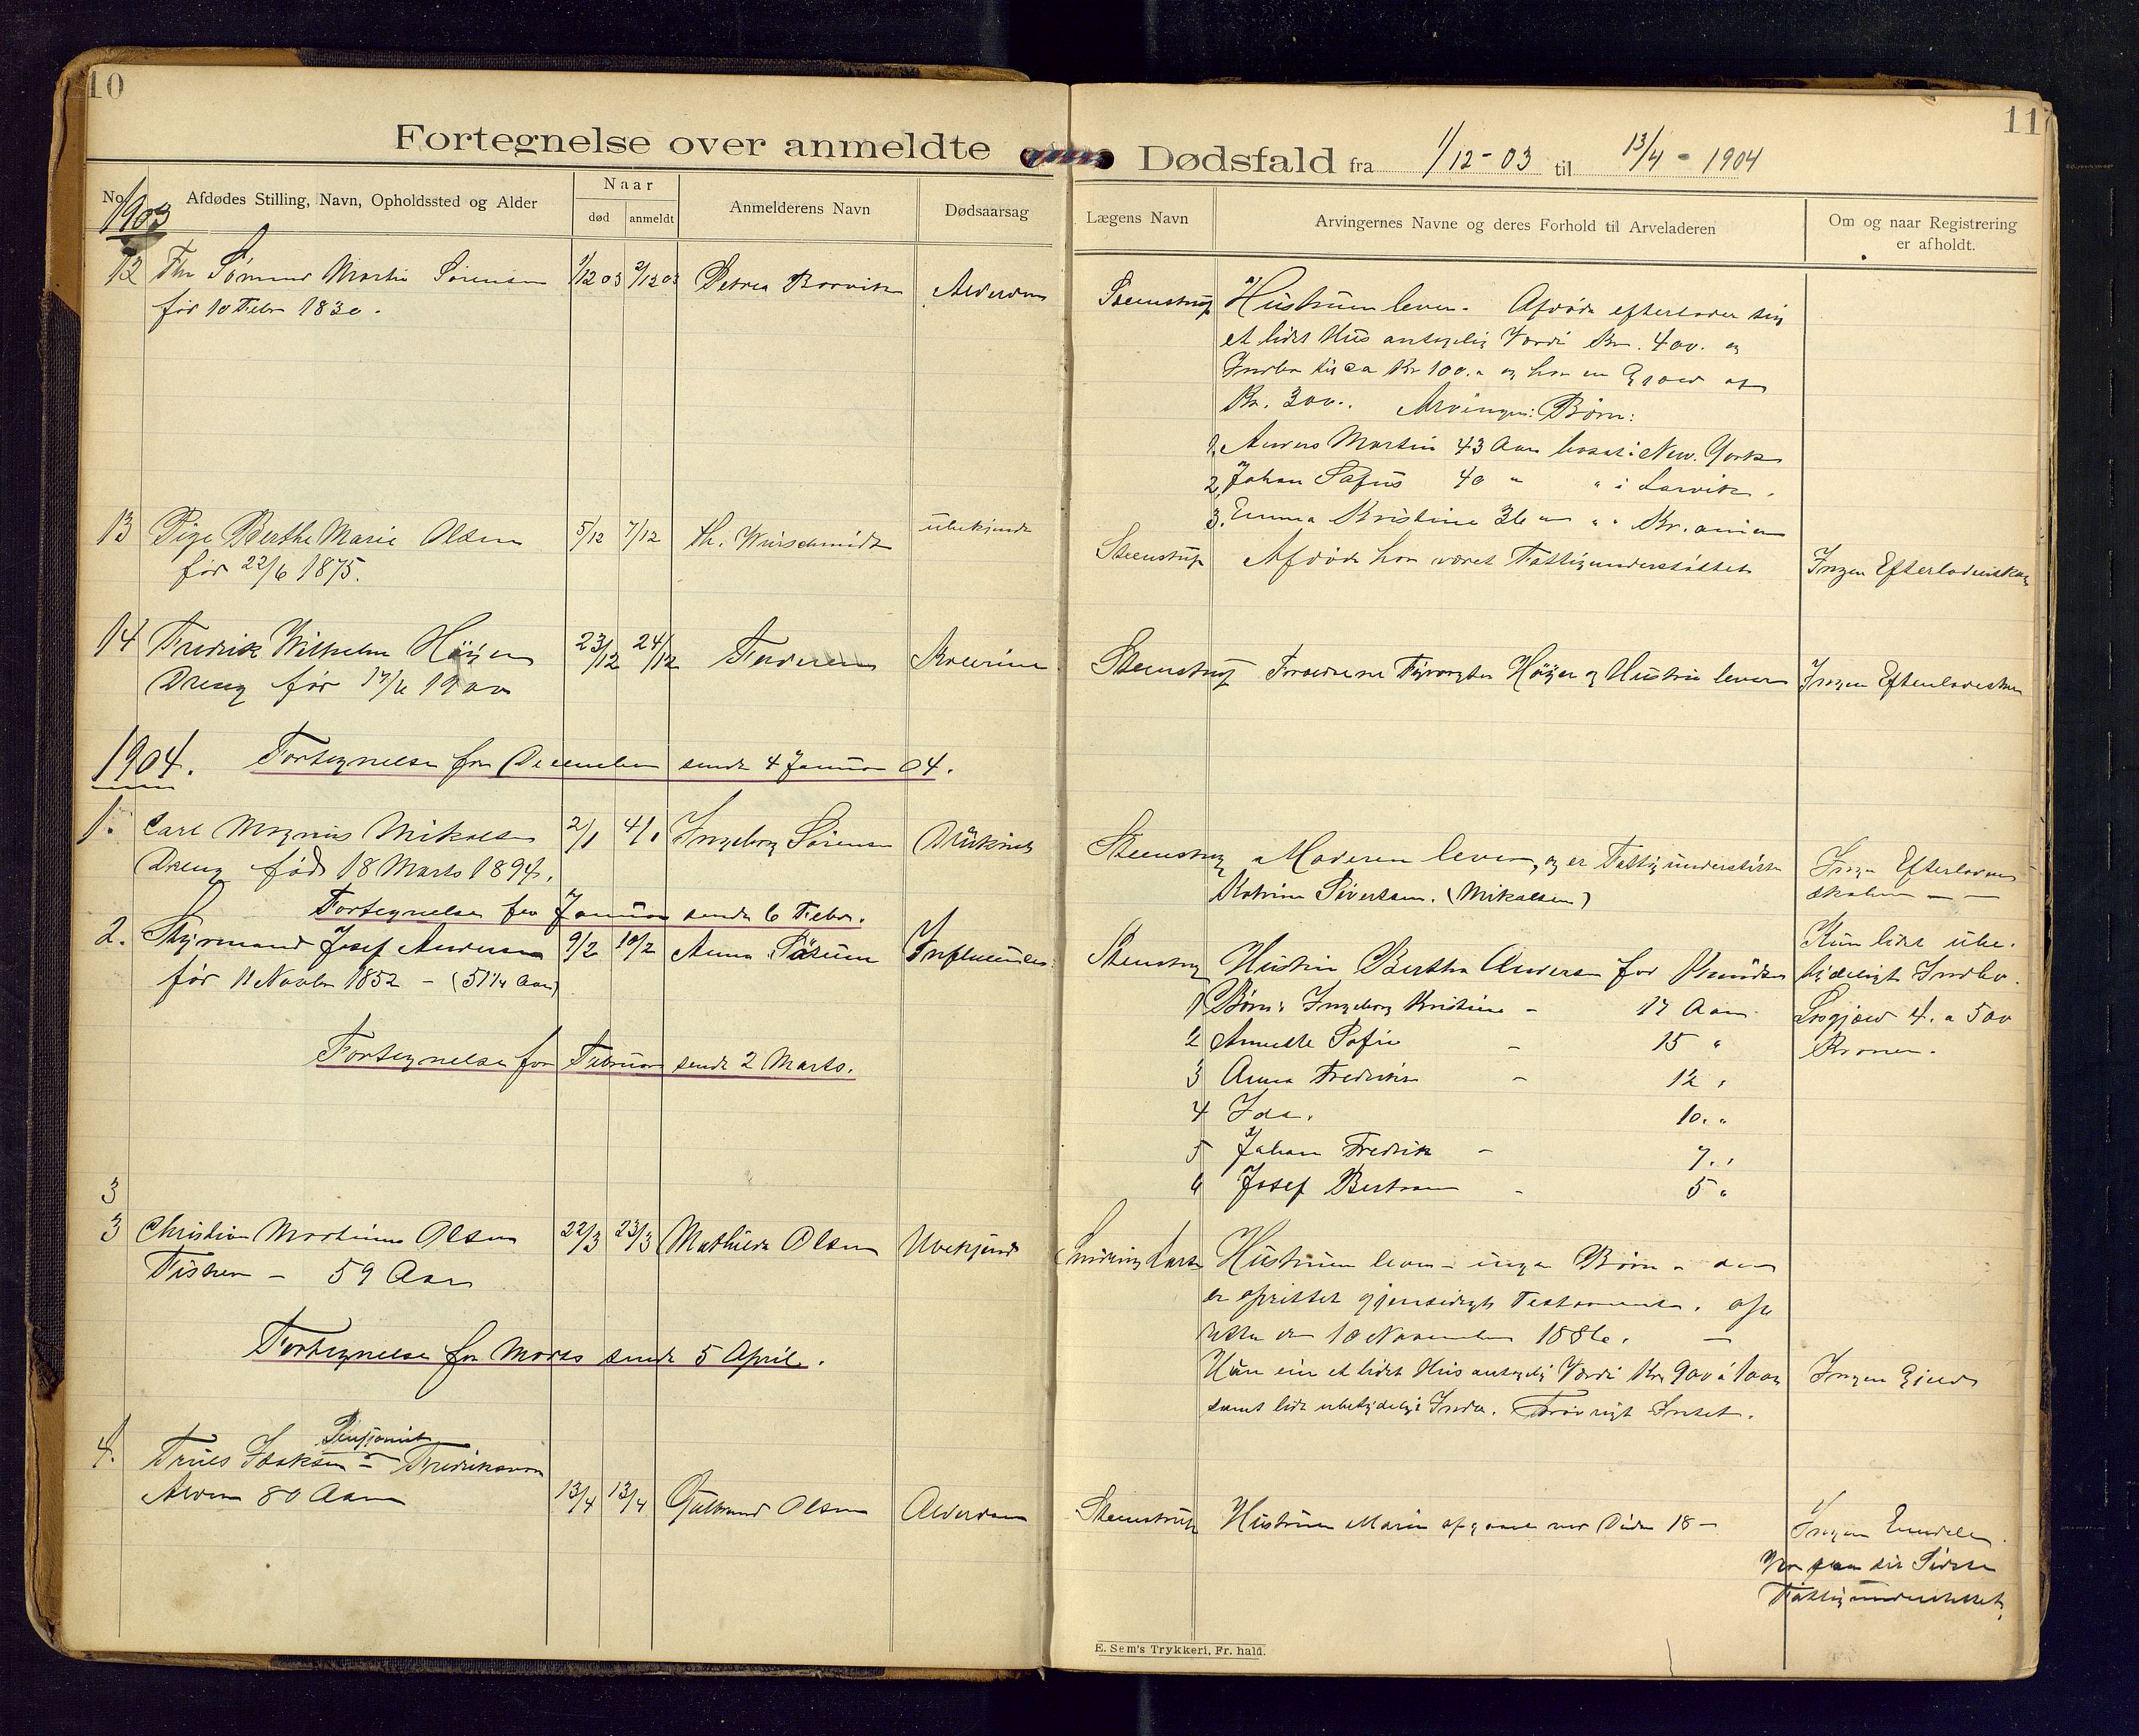 10
Fortegnelse over anmeldte
No
Afdødes Stilling, Navn, Opholdssted og Alder
Naar
død
anmeldt
Anmelderens Navn
Dødsaarsag
1903
12 Martin Sørensen 1/12 03 2/12 03 Petrea
før 10 Febr 1830.
13 Pige Berthe Marie Olsen 5/12 7/12 ubekjendt
før 22/6 1875.
14 Fredrik Wilhelm Höyer 23/12 24/12 Faderen
Dreng før 1900
1904. Fortegnelse for December sendt 4 Januar 04.
1. Carl Magnus Mikalsen 2/1 4/1 Ingeborg Sørensen
Dreng født 18 Marts 1894.
Fortegnelse for Januar sendt 6 Febr.
2. Styrmand Josef Andersen 9/2 10/2 Anna Influenza
før 11 Novbr 1852 - (51 1/4 Aar)
Fortegnelse for Februar sendt 2 Marts.
3
3 Christian Martinius Olsen 22/3 23/3 Mathilde Olsen Ubekjendt
Fisker - 59 Aar
Fortegnelse for Marts sendt 5 April.
Pensjonist
4. Truls Isaksen - Fredriksvern
Alder 80 Aar 13/4 13/4 Gulbrand Olsen Alderdom
11
Dødsfald fra 1/12-03 til 13/4-1904
Lægens Navn
Arvingernes Navne og deres Forhold til Arveladeren
Om og naar Registrering
er afholdt.
Steenstrup Hustruen lever. Afdøde efterlader sig
et lidet Hus antagelig Værdi Kr. 400. og
Indbo circa Kr 100. og har en Gjæld af
Kr. 300. Arvinger: Børn:
1. Anders Martin 43 Aar bosat i New York
2. Johan 40 " " i Larvik.
3. Emma Kristine 36 " " Kr.ania
Steenstrup Afdøde har været Fattigunderstøttet Ingen Efterladenskaber
Steenstrup Forældrene Fyrvogter Höyer og Hustru lever Ingen Efterladenskaber
Steenstrup Moderen lever, og er Fattigunderstøttet Ingen Efterladen
Katrine Sivertsen. (Mikalsen) skaber - -
Steenstrup Hustru Bertha Andersen Kun lidt ube-
tydeligt Indbo.
1 Børn: Ingeborg Kristine - 17 Aar 4 a 500
2 Annette Sofie - 15 " Kroner.
3 Anna Fredrikke - 12 "
4 Ida. 10 "
5 Johan Fredrik - 7 "
6 Josef Bertram - 5 "
Hustruen lever - ingen Børn -
er oprettet gjensidigt Testamente. op
rettet den 10 November 1886. -
et lidet Hus antagelig Værdi Kr 900 á 1000 Ingen Gjæld
samt lidt ubetydeligt Indbo. Forøvrigt Intet.
Steenstrup Hustruen Maren afgaaet ved Døden 18 - Ingen Eiendele
Fattigunderstøttet.
E. Sem's Trykkeri, Fr. hald.